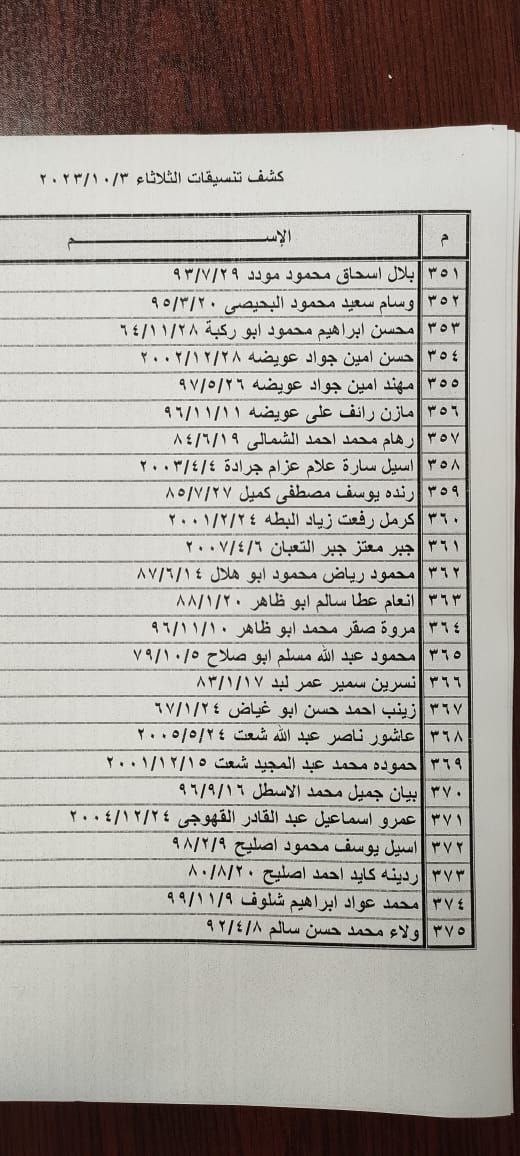 كشف تنسيقات الثلاثاء ٢٠٢٣/١٠/٣
م الإســـــم
٣٥١ بلال اسحاق محمود مودد ٩٣/٧/٢٩
٣٥٢ وسام سعيد محمود البحيصى ٩٥/٣/٢٠
٣٥٣ محسن ابراهيم محمود ابو ركبة ٦٤/١١/٢٨
٣٥٤ حسن امين جواد عويضه ٢٠٠٢/١٢/٢٨
٣٥٥ مهند امين جواد عويضه ٩٧/٥/٢٦
٣٥٦ مازن رائف على عويضه ٩٦/١١/١١
٣٥٧ رهام محمد احمد الشمالى ٨٤/٦/١٩
٣٥٨ اسيل سارة علام عزام جرادة ٢٠٠٣/٤/٤
٣٥٩ رنده يوسف مصطفى كميل ٨٥/٧/٢٧
٣٦٠ كرمل رفعت زياد البطه ٢٠٠١/٢/٢٤
٣٦١ جبر معتز جبر التعبان ٢٠٠٧/٤/٦
٣٦٢ محمود رياض محمود ابو هلال ٨٧/٦/١٤
٣٦٣ انعام عطا سالم ابو ظاهر ٨٨/١/٢٠
٣٦٤ مروة صقر محمد ابو ظاهر ٩٦/١١/١٠
٣٦٥ محمود عبد الله مسلم ابو صلاح ٧٩/١٠/٥
٣٦٦ نسرين سمير عمر لبد ٨٣/١/١٧
٣٦٧ زينب احمد حسن ابو غياض ٦٧/١/٢٤
٣٦٨ عاشور ناصر عبد الله شعت ٢٠٠٥/٥/٢٤
٣٦٩ حموده محمد عبد المجيد شعت ٢٠٠١/١٢/١٥
٣٧٠ بيان جميل محمد الاسطل ٩٦/٩/١٦
٣٧١ عمرو اسماعيل عبد القادر القهوجى ٢٠٠٤/١٢/٢٤
٣٧٢ اسيل يوسف محمود اصليح ٩٨/٢/٩
٣٧٣ ردينه كايد احمد اصليح ٨٠/٨/٢٠
٣٧٤ محمد عواد ابراهيم شلوف ٩٩/١١/٩
٣٧٥ ولاء محمد حسن سالم ٩٢/٤/٨